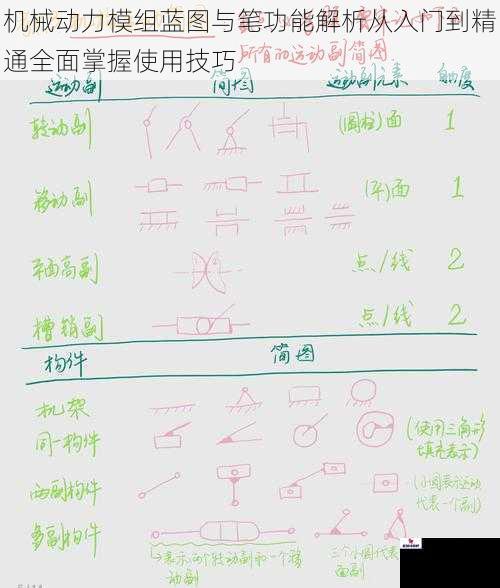 机械动力模组蓝图与笔功能解析从入门到精
通全面掌握使用技巧
所有的运动副简图
运动副 简图 运动副元素 自由度
转动副 (圆柱)面 1
移动副 (平)面 1
平面高副 点/线 2
槽销副 点/线 2
构件 简图
机架
同一构件 (使用三角形
填充表示)
两副构件 (小圆表示运动
代表一个副)
多副构件
表示两个转动副和一个移
动副
三个小圆代表
面副